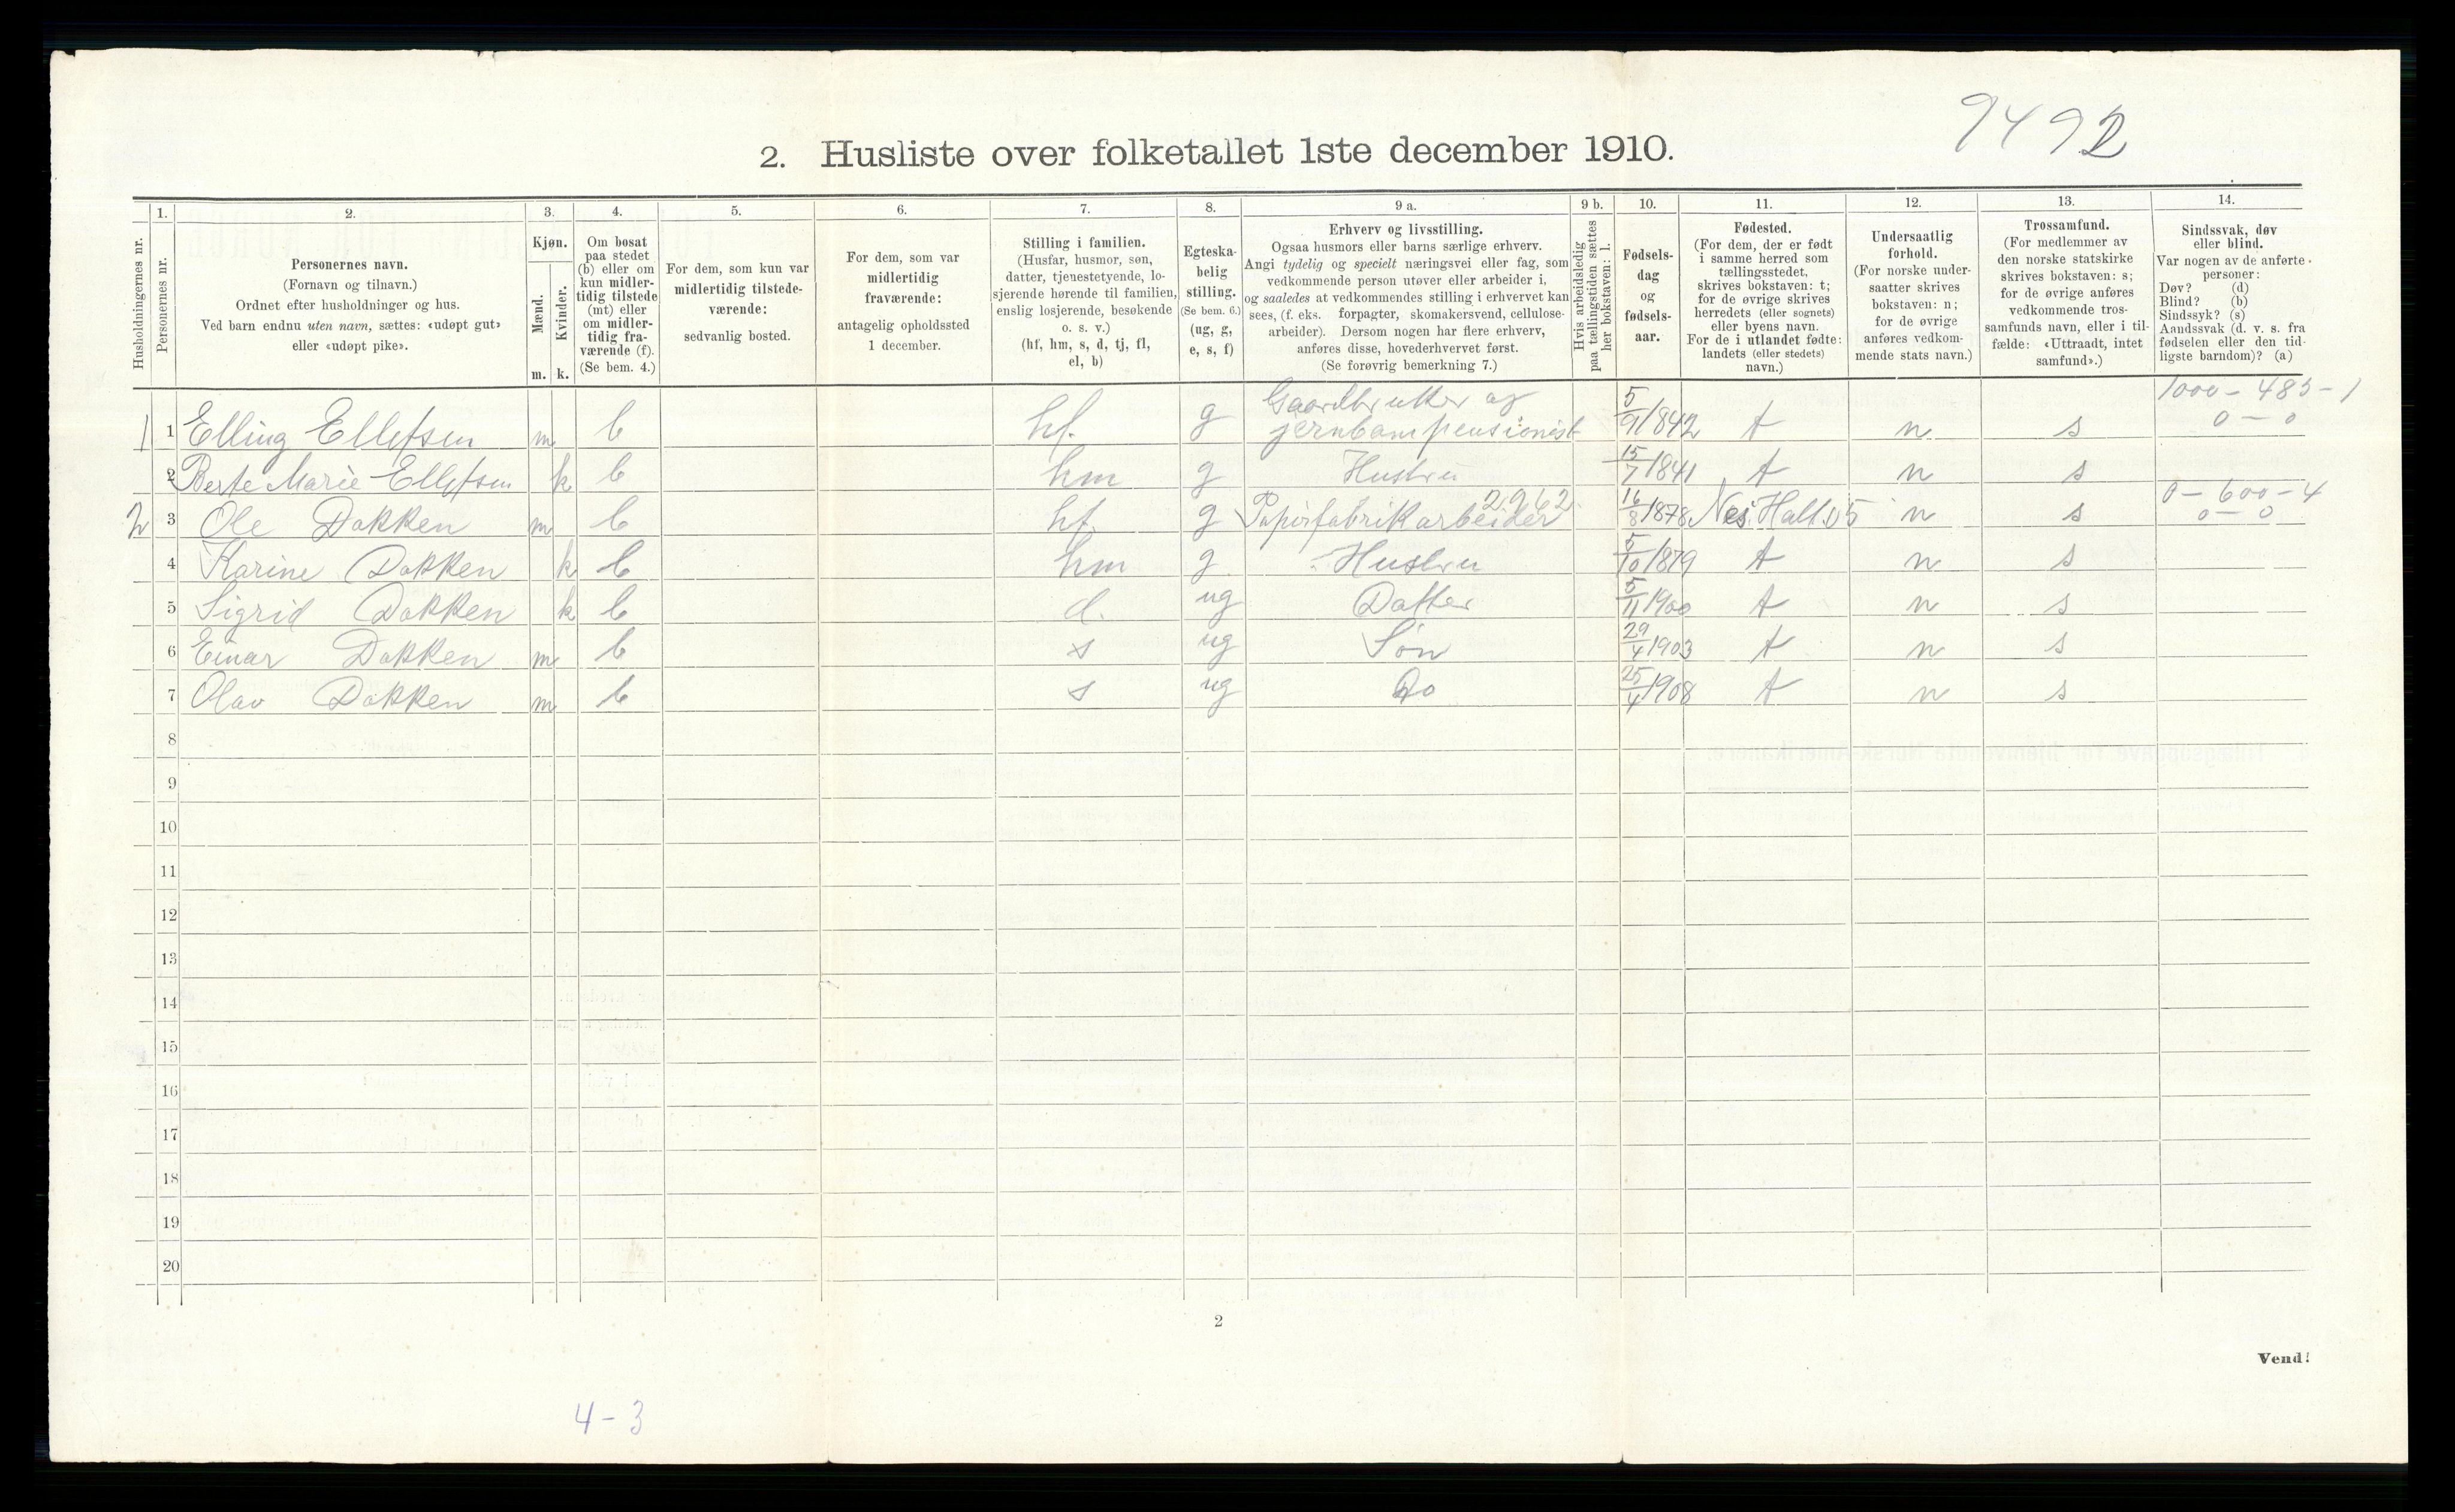 9492
2. Husliste over folketallet 1ste december 1910.
Husholdningernes nr.
1.
Personernes nr.
2.
Personernes navn.
(Fornavn og tilnavn.)
Ordnet efter husholdninger og hus.
Ved barn endnu uten navn, sættes: «udøpt gut»
eller «udøpt pike».
3.
Kjøn.
Mænd.
Kvinder.
m. k.
4.
Om bosat
paa stedet
(b) eller om
kun midler-
tidig tilstede
(mt) eller
om midler-
tidig fra-
værende (f).
(Se bem. 4.)
5.
For dem, som kun var
midlertidig tilstede-
værende:
sedvanlig bosted.
6.
For dem, som var
midlertidig
fraværende:
antagelig opholdssted
1 december.
7.
Stilling i familien.
(Husfar, husmor, søn,
datter, tjenestetyende, lo-
sjerende hørende til familien,
enslig losjerende, besøkende
o. s. v.)
(hf, hm, s, d, tj, fl,
el, b)
8.
Egteska-
belig
stilling.
(Se bem. 6.)
(ug, g,
e, s, f)
9 a.
Erhverv og livsstilling.
Ogsaa husmors eller barns særlige erhverv.
Angi tydelig og specielt næringsvei eller fag, som
vedkommende person utøver eller arbeider i,
og saaledes at vedkommendes stilling i erhvervet kan
sees, (f. eks. forpagter, skomakersvend, cellulose-
arbeider). Dersom nogen har flere erhverv,
anføres disse, hovederhvervet først.
(Se forøvrig bemerkning 7.)
9 b.
Hvis arbeidsledig
paa tællingstiden sættes
her bokstaven: l.
10.
Fødsels-
dag
og
fødsels-
aar.
11.
Fødested.
(For dem, der er født
i samme herred som
tællingsstedet,
skrives bokstaven: t;
for de øvrige skrives
herredets (eller sognets)
eller byens navn.
For de i utlandet fødte:
landets (eller stedets)
navn.)
12.
Undersaatlig
forhold.
(For norske under-
saatter skrives
bokstaven: n;
for de øvrige
anføres vedkom-
mende stats navn.)
13.
Trossamfund.
(For medlemmer av
den norske statskirke
skrives bokstaven: s;
for de øvrige anføres
vedkommende tros-
samfunds navn, eller i til-
fælde: «Uttraadt, intet
samfund».)
14.
Sindssvak, døv
eller blind.
Var nogen av de anførte
personer:
Døv? (d)
Blind? (b)
Sindssyk? (s)
Aandssvak (d. v. s. fra
fødselen eller den tid-
ligste barndom)? (a)
1000 - 485 - 1
0 - 0
1 1 Elling Ellefsen m b hf. g Gaardbruker og jernbanepensionist 5/9 1842 t n s
2 Berte Marie Ellefsen k b hm g Hustru 15/7 1841 t n s
0 - 600 - 4
0 - 0
2 3 Ole Dokken m b hf. g Papirfabrikarbeider 2962 16/8 1878 Nes Hall. 05 n s
4 Karine Dokken k b hm g Hustru 5/10 1879 t n s
5 Sigrid Dokken k b d. ug Datter 5/11 1900 t n s
6 Einar Dokken m b s ug Søn 29/4 1903 t n s
7 Olav Dokken m b s ug Do 25/4 1908 t n s
8
9
10
11
12
13
14
15
16
17
18
19
20
2
Vend!
4-3